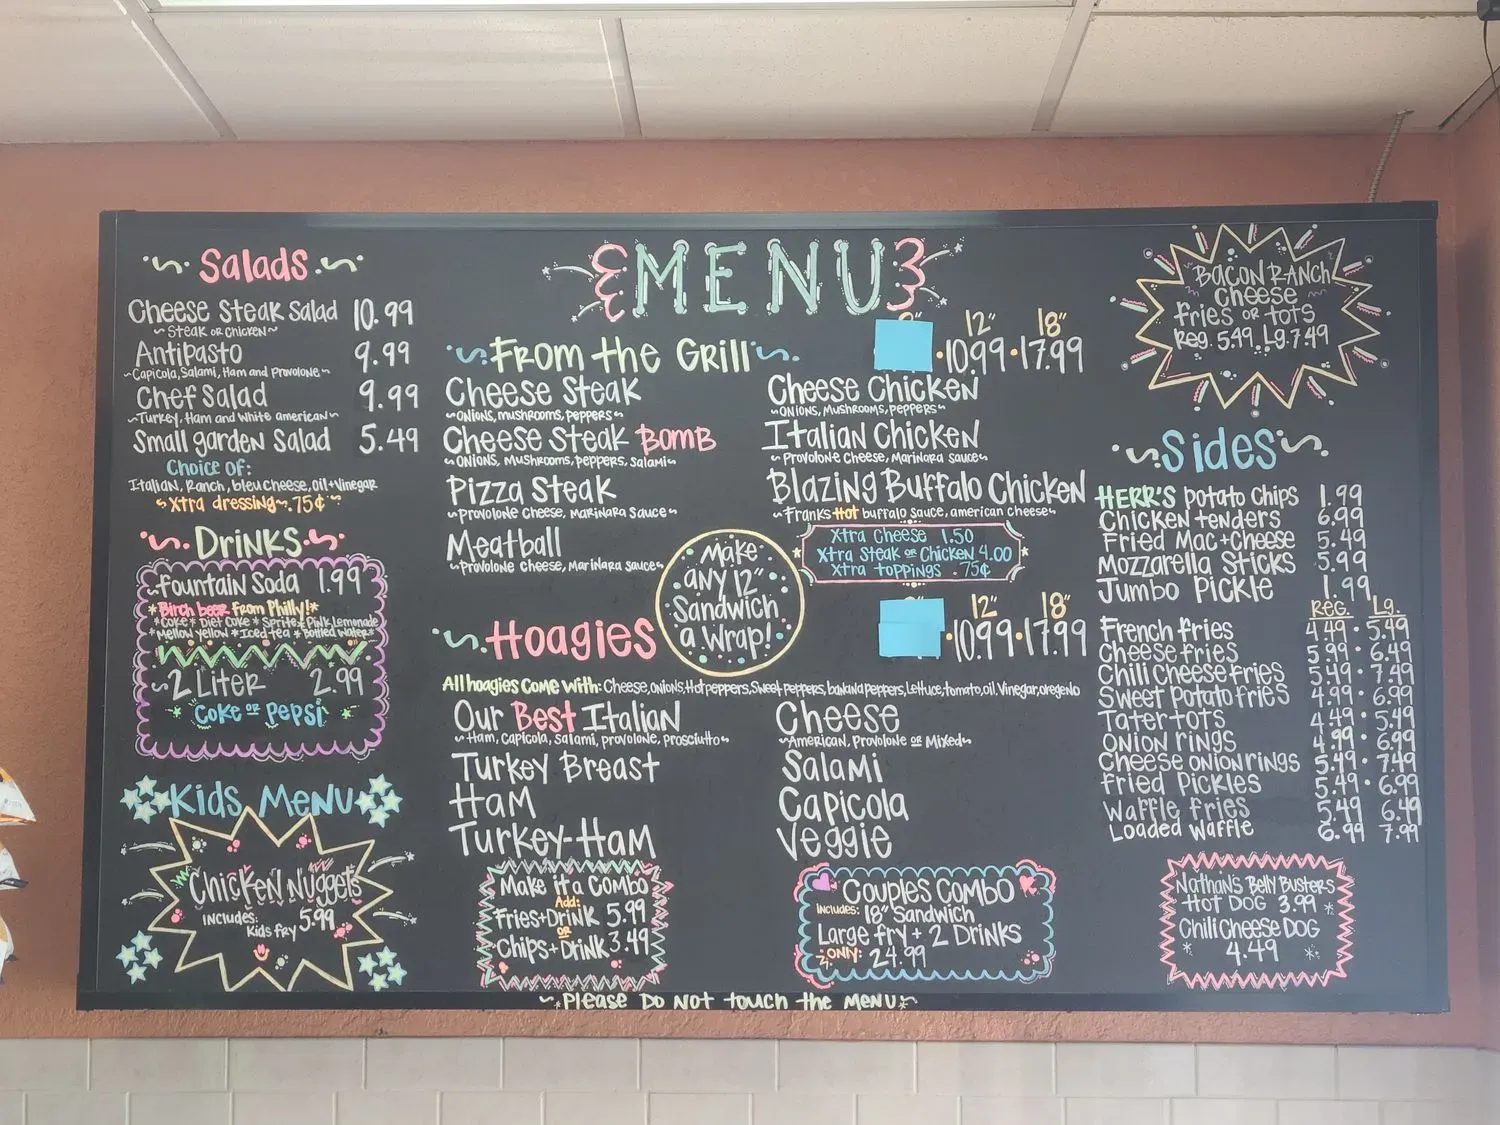 MENU
Salads
Cheese Steak Salad 10.99
~ Steak or Chicken ~
Antipasto 9.99
~ Capicola, Salami, Ham and Provolone ~
Chef Salad 9.99
~ Turkey, Ham and White american ~
Small garden Salad 5.49
Choice of:
Italian, Ranch, bleu cheese, oil + Vinegar
~ Xtra dressing ~ .75¢ ~
Drinks
Fountain Soda 1.99
* Birch beer from Philly! *
* Coke * Diet Coke * Sprite * Pink Lemonade
* Mellow Yellow * Iced tea * Bottled Water *
~ 2 Liter 2.99
Coke or Pepsi
Kids Menu
Chicken Nuggets
includes: 5.99
Kids fry
From the Grill 12" 18"
10.99 • 17.99
Cheese Steak
~ Onions, mushrooms, peppers ~
Cheese Steak Bomb
~ Onions, Mushrooms, peppers, Salami ~
Pizza Steak
~ Provolone Cheese, Marinara sauce ~
Meatball
~ Provolone Cheese, Marinara sauce ~
Cheese Chicken
~ Onions, Mushrooms, peppers ~
Italian Chicken
~ Provolone Cheese, Marinara sauce ~
Blazing Buffalo Chicken
~ Franks Hot buffalo Sauce, american cheese ~
Xtra Cheese 1.50
Xtra Steak or Chicken 4.00
Xtra toppings .75¢
Make
any 12"
Sandwich
a Wrap!
Hoagies 12" 18"
10.99 • 17.99
All hoagies Come With: Cheese, onions, Hot peppers, Sweet peppers, banana peppers, Lettuce, tomato, oil, Vinegar, oregeno
Our Best Italian
~ Ham, Capicola, Salami, provolone, prosciutto ~
Turkey Breast
Ham
Turkey-Ham
Cheese
~ American, Provolone or Mixed ~
Salami
Capicola
Veggie
Make it a Combo
Add:
Fries + Drink 5.99
or
Chips + Drink 3.49
Couples Combo
includes: 18" Sandwich
Large fry + 2 Drinks
only: 24.99
Bacon Ranch
Cheese
fries or tots
Reg. 5.49 Lg. 7.49
Sides
HERR'S potato Chips 1.99
Chicken tenders 6.99
Fried Mac + Cheese 5.49
Mozzarella Sticks 5.99
Jumbo Pickle 1.99
Reg. Lg.
French fries 4.49 • 5.49
Cheese fries 5.99 • 6.49
Chili Cheese fries 5.49 • 7.49
Sweet potato fries 4.99 • 6.99
Tater tots 4.49 • 5.49
Onion rings 4.99 • 6.99
Cheese onion rings 5.49 • 7.49
Fried Pickles 5.49 • 6.99
Waffle fries 5.49 6.49
Loaded Waffle 6.99 7.99
Nathan's Belly Busters
Hot Dog 3.99
Chili Cheese Dog
4.49
~ Please Do Not touch the Menu ~